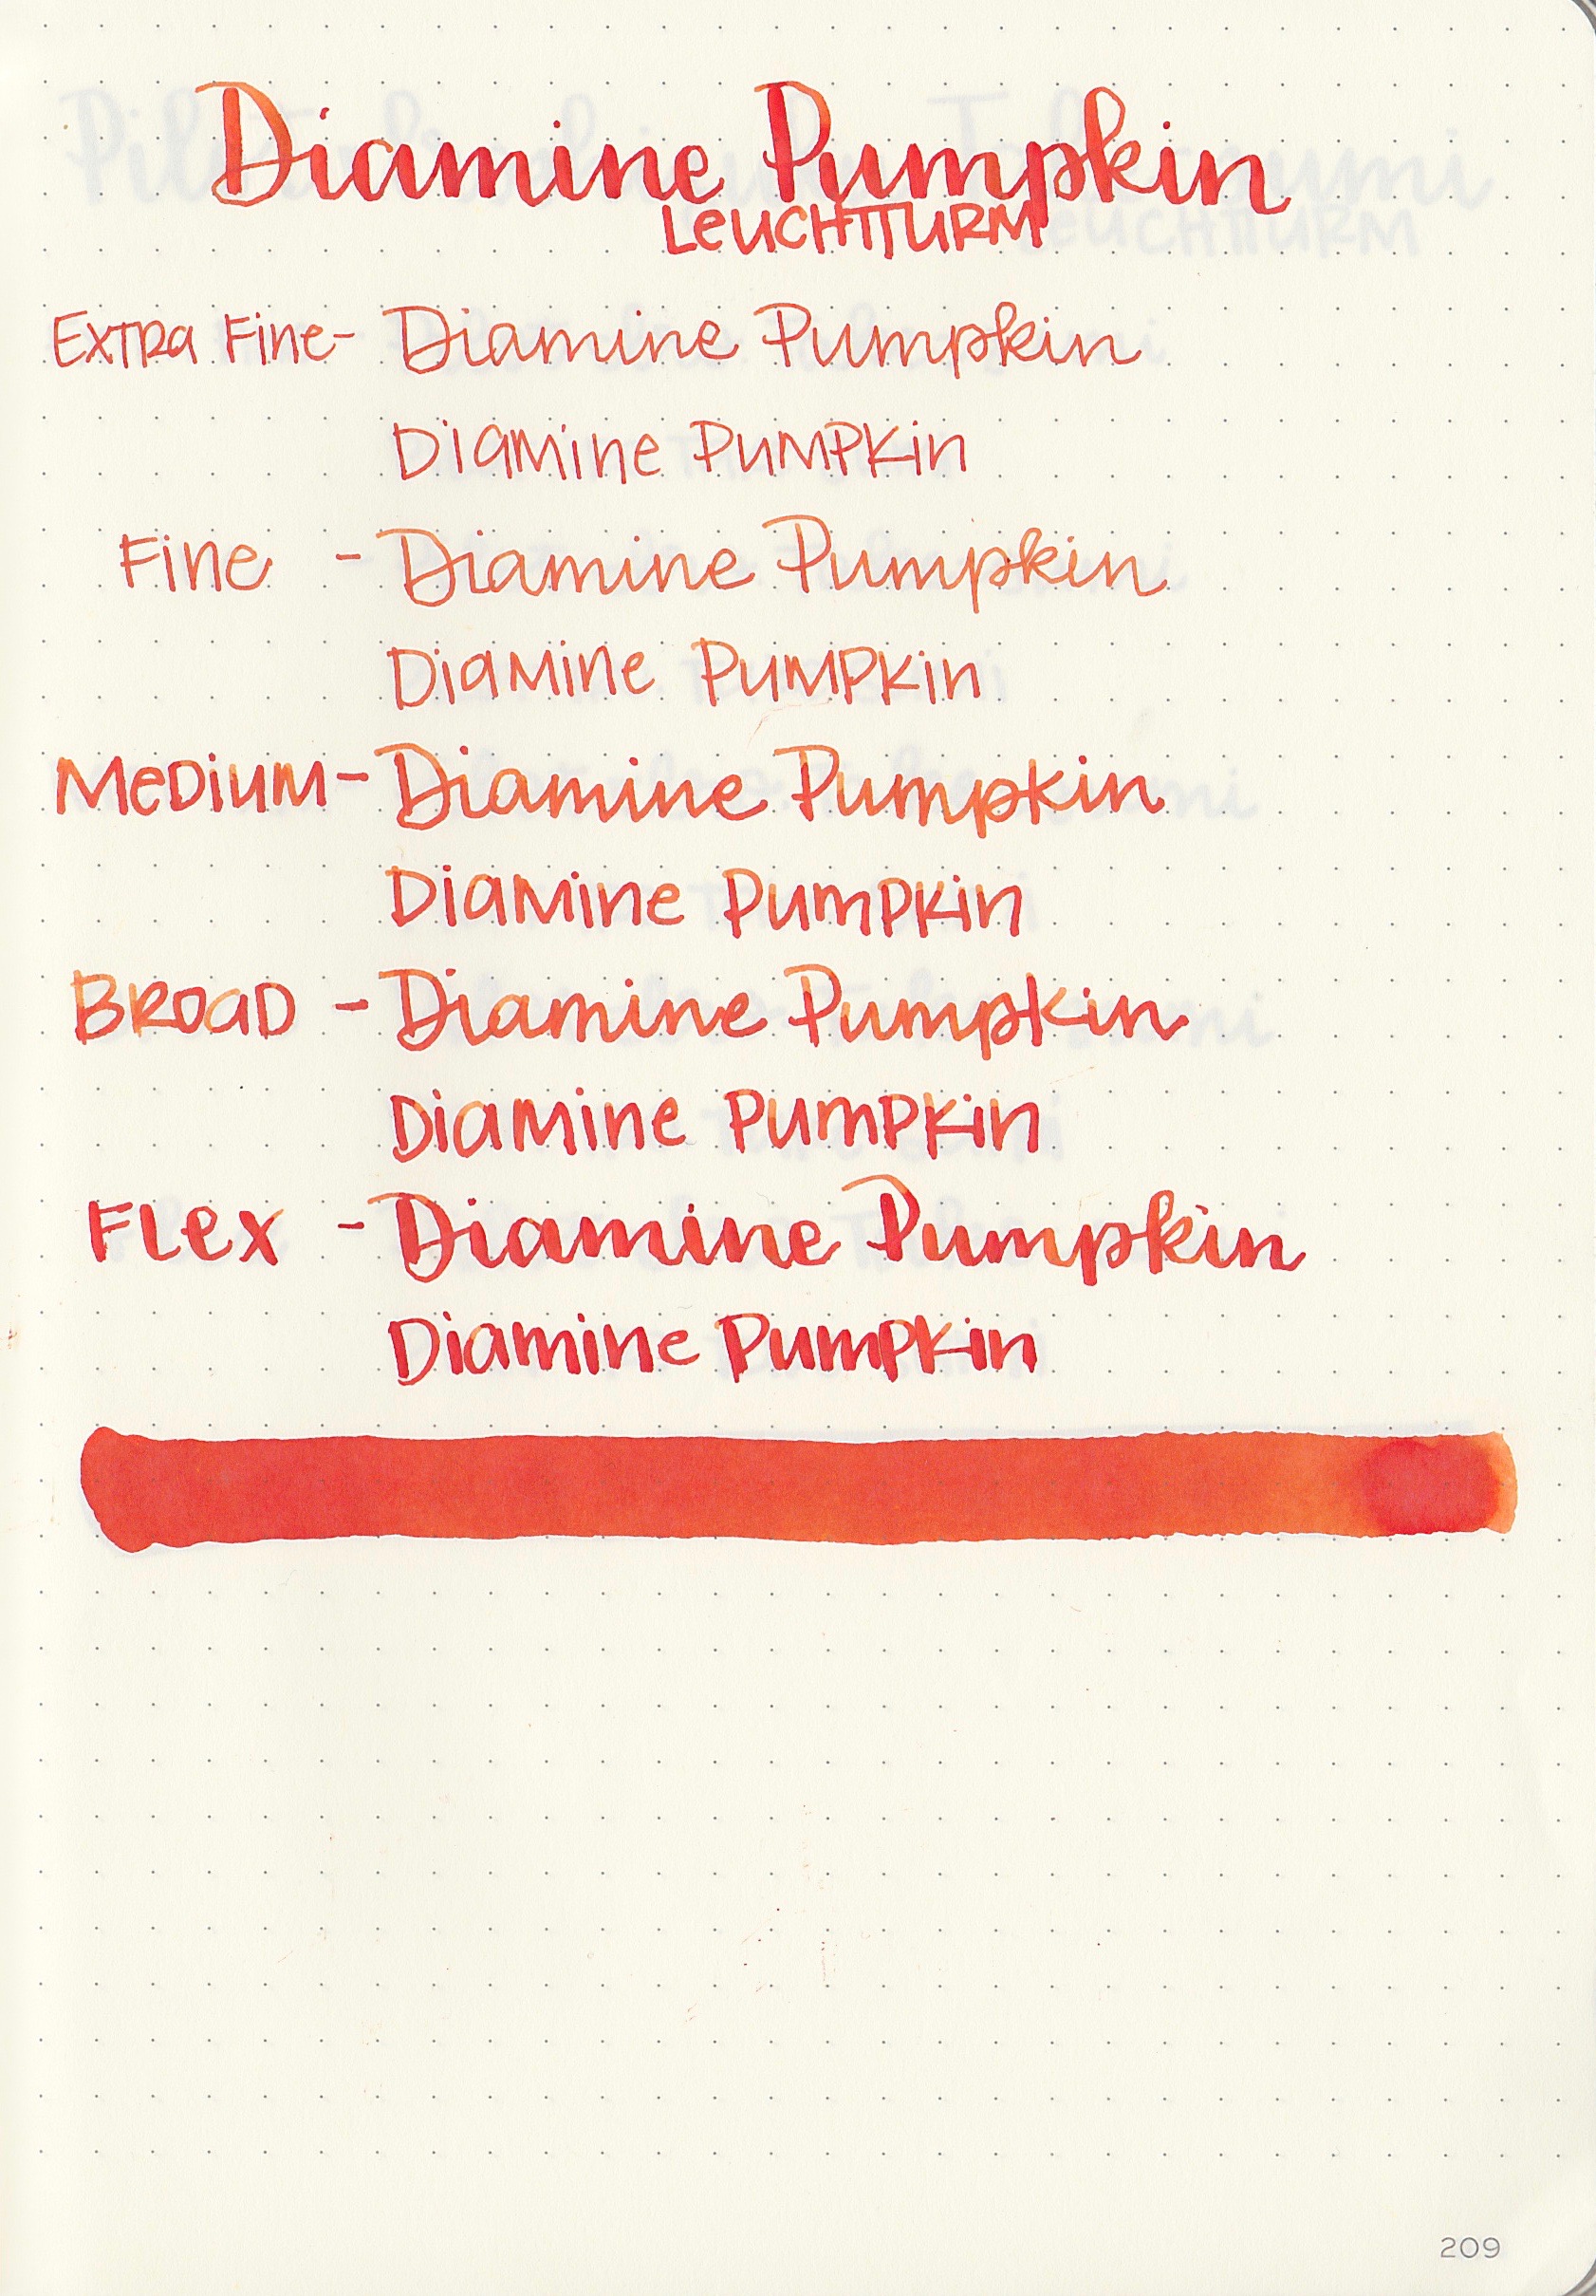 Diamine Pumpkin
LEUCHTTURM
Extra Fine- Diamine Pumpkin
Diamine Pumpkin
Fine - Diamine Pumpkin
Diamine Pumpkin
Medium- Diamine Pumpkin
Diamine Pumpkin
Broad - Diamine Pumpkin
Diamine Pumpkin
Flex - Diamine Pumpkin
Diamine Pumpkin
209